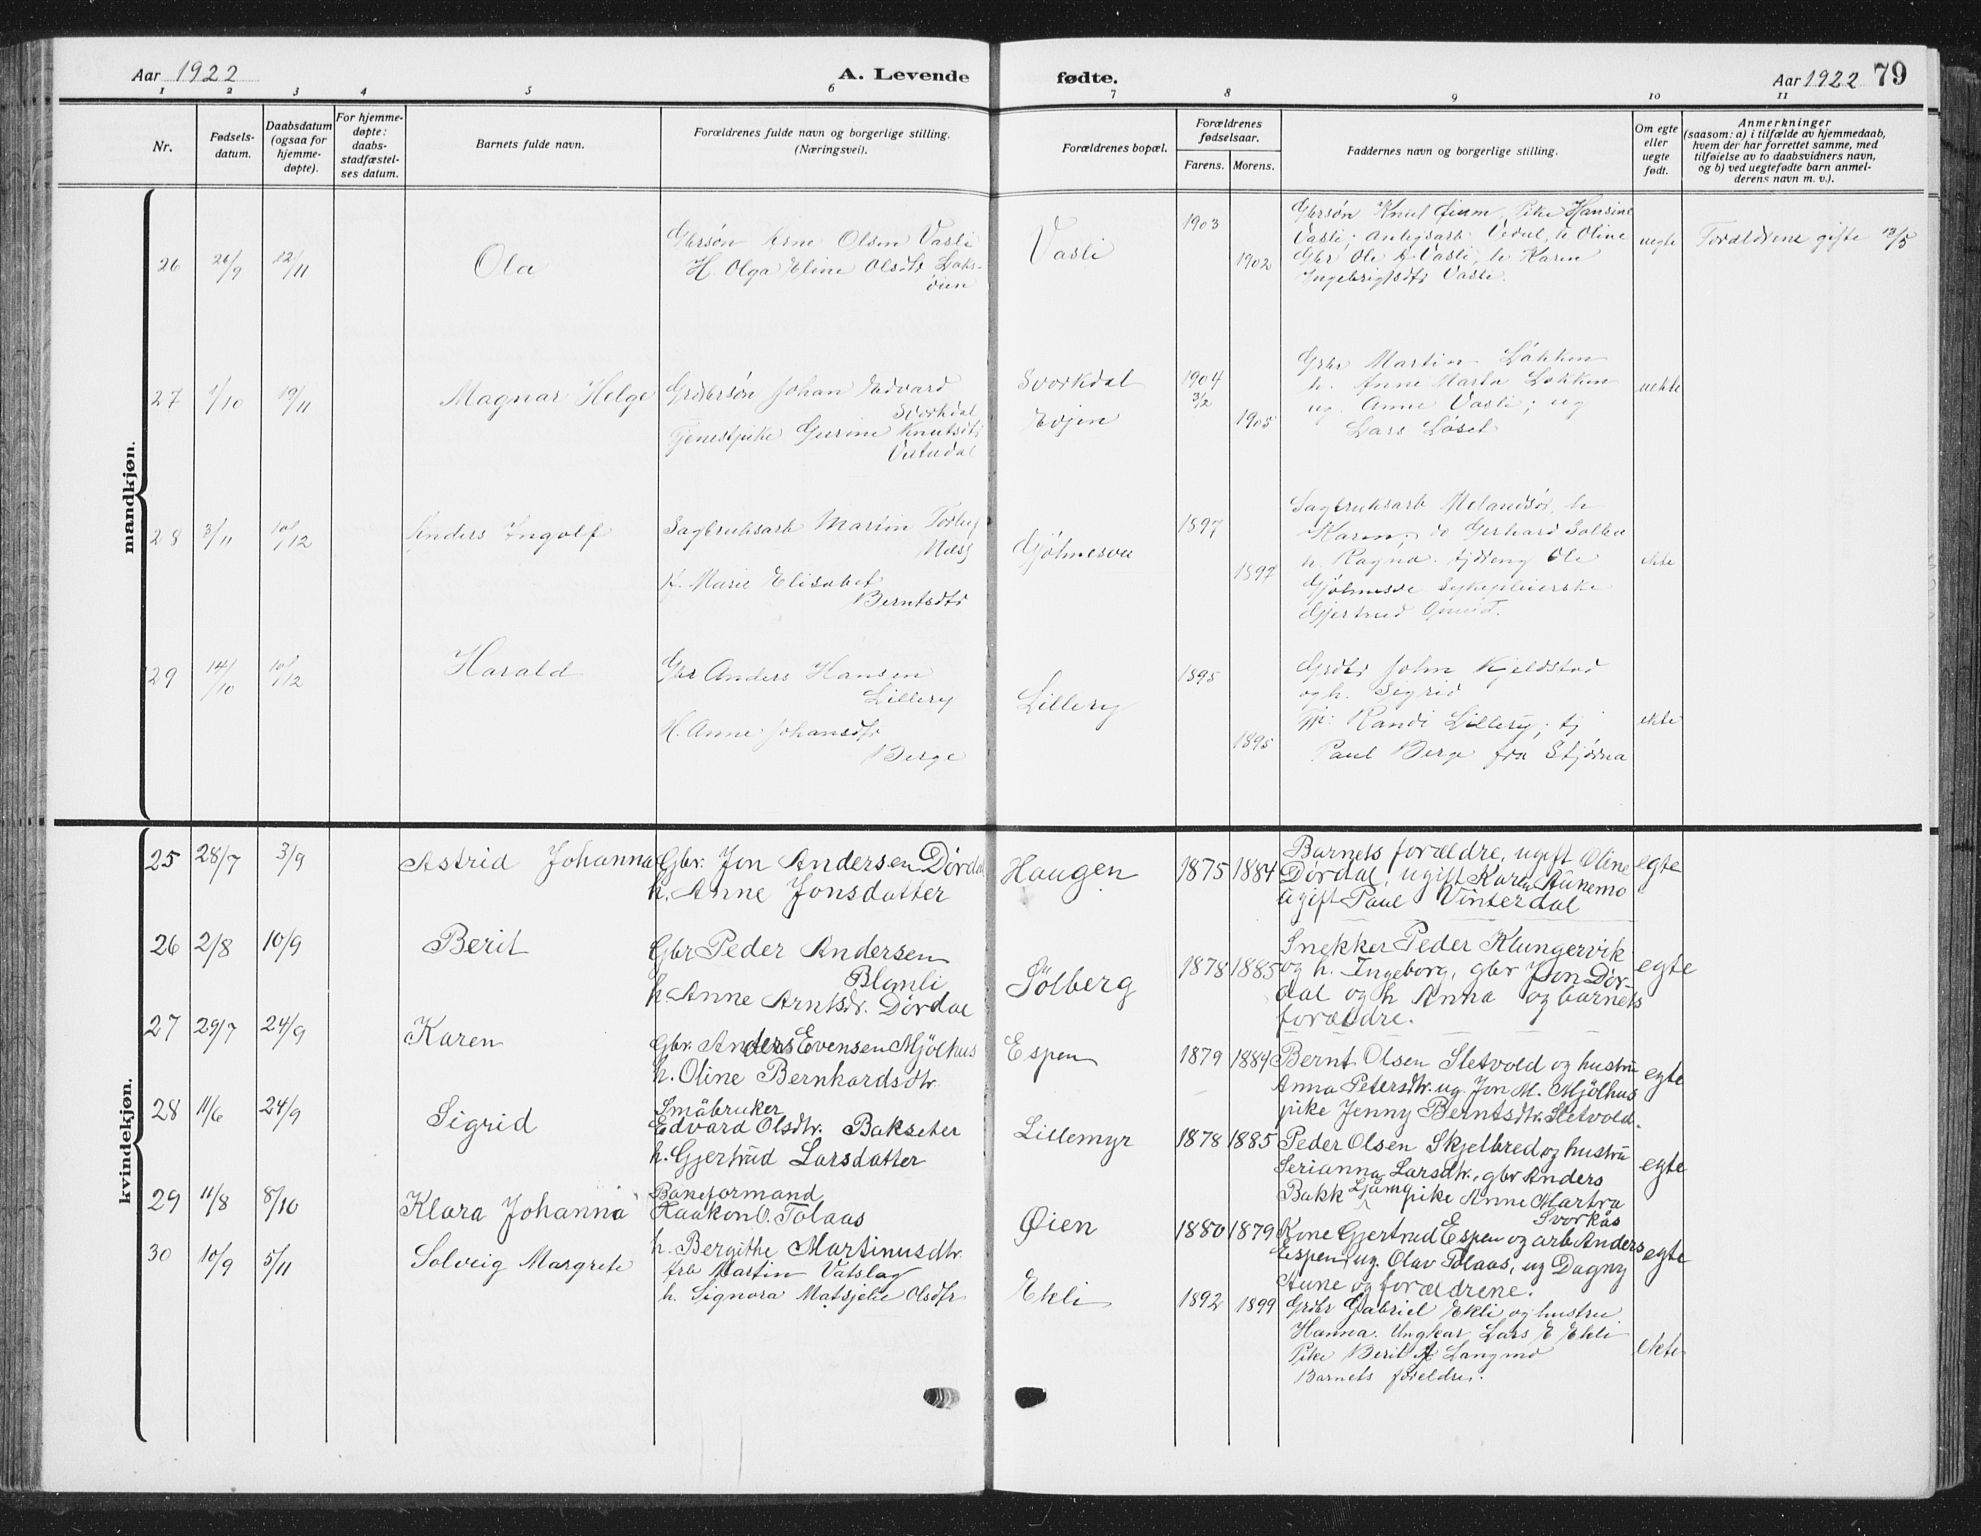 Aar 1922
A. Levende
fødte.
Aar 1922
79
1 2 3 4 5 6 7 8 9 10 11
Nr.
Fødsels-
datum.
Daabsdatum
(ogsaa for
hjemme-
døpte).
For hjemme-
døpte:
daabs-
stadfæstel-
ses datum.
Barnets fulde navn.
Forældrenes fulde navn og borgerlige stilling.
(Næringsvei).
Forældrenes bopæl.
Forældrenes
fødselsaar.
Farens. Morens.
Faddernes navn og borgerlige stilling.
Om egte
eller
uegte
født.
Anmerkninger
(saasom: a) i tilfælde av hjemmedaab,
hvem der har forrettet samme, med
tilføielse av to daabsvidners navn,
og b) ved uegtefødte barn anmel-
derens navn m. v.).
mandkjøn.
26 26/9 12/11
Ola
Gbrsøn Arne Olsen Vasli
H. Olga Eline Olsdtr Laks-
øien
Vasli
1903
1902
Gbrsøn Knut Pike Hansine
Vasli; Vedul, h Oline
Gbr Ole A. Vasli, h. Karen
Ingebrigtsdtr Vasli.
uegte
Forældrene gifte 13/5
27 1/10 19/11
Magnar Helge
Grdbrsøn Johan Edvard
Svorkdal
Tjenestpike Gurine Knutsdtr
Svorkdal
Evjen
1904
3/2
1905
Grbr Martin Løkken
h. Anne Marta Løkken
ug. Anne Vasli; ug
Lars Løset
uekte
28 3/11 10/12
Anders Ingolf
Sagbruksarb Martin
Næss
h. Marie Elisabet
Berntsdtr
Gjølmesøe
1897
1897
Sagbruksarb Melandsø, h
Karen, do Gerhard Solbu
h. Ragna. Ole
Gjølmesøe Sykepleierske
Gjertrud
ekte
29 14/10 10/12
Harald
Gbr Anders Hansen
Lillery
H. Anne Johansdtr
Berge
Lillery
1895
1895
Grdbr John Kjeldstad
og h. Sigrid
Tjp: Randi Lillery; tj
Paul Berge fra Stjørna
ekte
kvindekjøn.
25 28/7 3/9
Astrid Johanna
Gbr. Jon Andersen Dørdal
h. Anne Jonsdatter
Haugen
1875 1884
Barnets forældre, ugift Oline
Dørdal, ugift Karen Aunemo
ugift Paul Vinterdal
egte
26 2/8 10/9
Berit
Gbr Peder Andersen
Blomli
h. Anne Arntsdr. Dørdal
Sölberg
1878 1885
Snekker Peder Klungervik
og h. Ingeborg, gbr Jon Dör-
dal og h Anna og barnets
forældre.
egte
27 29/7 24/9
Karen
Gbr. Anders Evensen Mjölhus
h. Oline Bernhardsdtr.
Espen
1879 1884
Bernt Olsen Sletvold og hustru
Anna Petersdtr. ug. Jon M. Mjölhus
pike Jenny Berntsdtr. Sletvold.
egte
28 11/6 24/9
Sigrid
Småbruker
Edvard Olsdtr. Bakseter
h. Gjertrud Larsdatter
Lillemyr
1878 1885
Peder Olsen Skjelbred og hustru
Serianna Larsdtr., gbr Anders
Bakk Ljamo pike Anne Martra
Svorkås
egte
29 11/8 8/10
Klara Johanna
Baneformand
Haakon O. Tolaas
h. Bergithe Martinusdtr.
Øien
1880 1879
Kone Gjertrud Espen og arb Anders
Espen, ug. Olav Tolaas, ug Dagny
Aune og forældrene.
egte
30 10/9 5/11
Solveig Margrete
frb Martin Vatslag
h. Signora Matsjelie Olsdtr
Ekli
1892 1899
Grdbr Gabriel Ekli og hustru
Hanna. Ungkar Lars E Ekli
Pike Berit Langmo
Barnets foreldre.
ekte